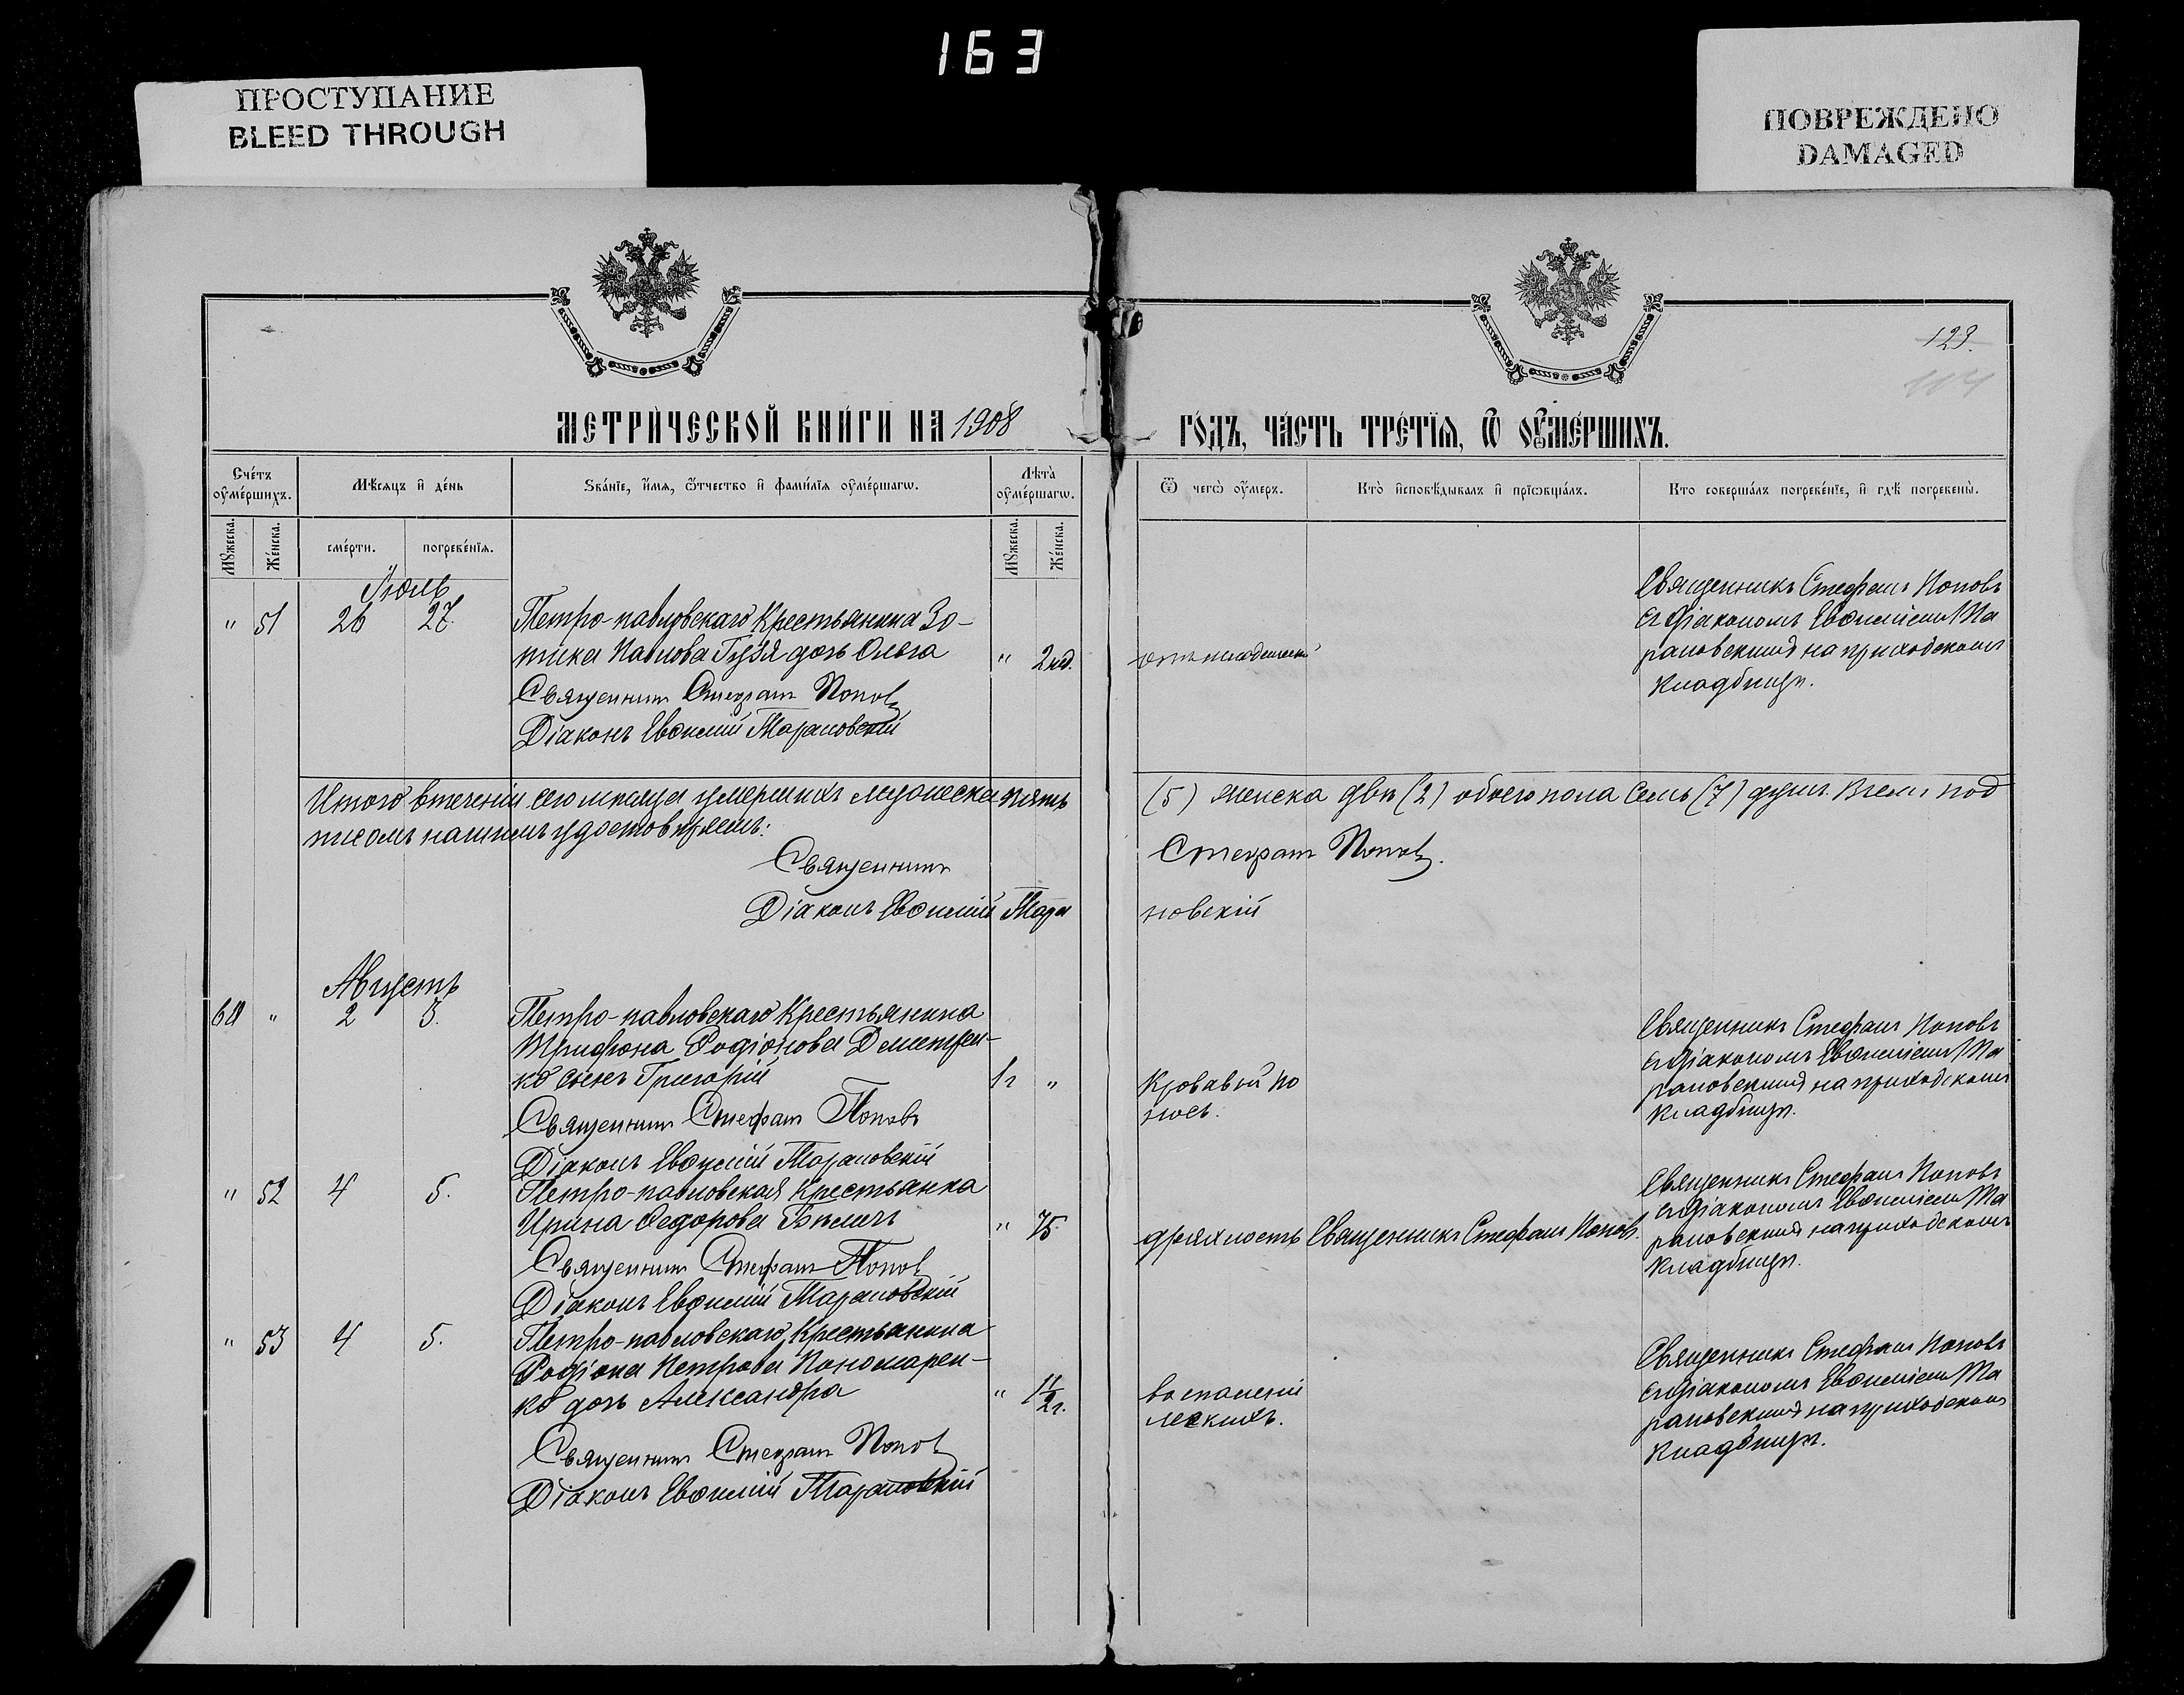 163
ПРОСТУПАНИЕ
BLEED THROUGH
ПОВРЕЖДЕНО
DAMAGED
123.
114
МЕТРИЧЕСКОЙ КНИГИ НА 1908
ГОДЪ, ЧАСТЬ ТРЕТІѦ, Ѿ ОУМЕРШИХЪ.
Счетъ оумершихъ.
Мѣсяцъ и день
Званіе, имя, отчество и фамилія оумершагѡ.
Лѣта оумершагѡ.
Ѿ чегѡ оумеръ.
Кто исповѣдывалъ и пріѡбщалъ.
Кто совершалъ погребеніе, и гдѣ погребены.
Мужеска.
Женска.
смерти.
погребенія.
Мужеска.
Женска.
Іюль
" 51 26 27. Петро-павловскаго Крестьянина Зо-
тика Павлова Гузя дочь Ольга " 2 нд.
Священникъ Стефанъ Поповъ
Діаконъ Евѳимій Тарановскій
Священникъ Стефанъ Поповъ
съ діакономъ Евѳиміемъ Та
рановскимъ на приходскомъ
кладбищѣ.
Итого втеченіи сего мѣсяца умершихъ мужеска пять (5) женска двѣ (2) обоего пола семь (7) душъ. Въ чемъ под
писомъ нашимъ удостовѣряемъ:
Священникъ Стефанъ Поповъ.
Діаконъ Евѳимій Тара новскій
Августъ
60 " 2 3. Петро-павловскаго Крестьянина
Трифона Родіонова Деметрен-
ко сынъ Григорій 1 г "
Священникъ Стефанъ Поповъ
Діаконъ Евѳимій Тарановскій
Кровавый по
носъ.
Священникъ Стефанъ Поповъ
съ діакономъ Евѳиміемъ Та
рановскимъ на приходскомъ
кладбищѣ.
" 52 4 5. Петро-павловская Крестьянка
Ирина Ѳедорова Бѣличъ " 75
Священникъ Стефанъ Поповъ
Діаконъ Евѳимій Тарановскій
дряхлость Священникъ Стефанъ Поповъ.
Священникъ Стефанъ Поповъ
съ діакономъ Евѳиміемъ Та
рановскимъ на приходскомъ
кладбищѣ.
" 53 4 5. Петро-павловскаго Крестьянина
Родіона Петрова Пономарен-
ко дочь Александра " 1 1/2 г.
Священникъ Стефанъ Поповъ
Діаконъ Евѳимій Тарановскій
воспаленій
легкихъ.
Священникъ Стефанъ Поповъ
съ діакономъ Евѳиміемъ Та
рановскимъ на приходскомъ
кладбищѣ.